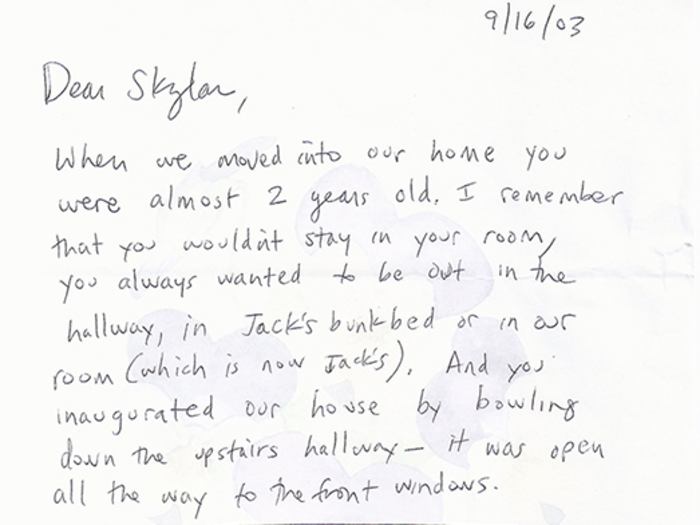 9/16/03
Dear Skylar,
When we moved into our home you
were almost 2 years old. I remember
that you wouldn't stay in your room,
you always wanted to be out in the
hallway, in Jack's bunkbed or in our
room (which is now Jack's). And you
inaugurated our house by bowling
down the upstairs hallway — it was open
all the way to the front windows.